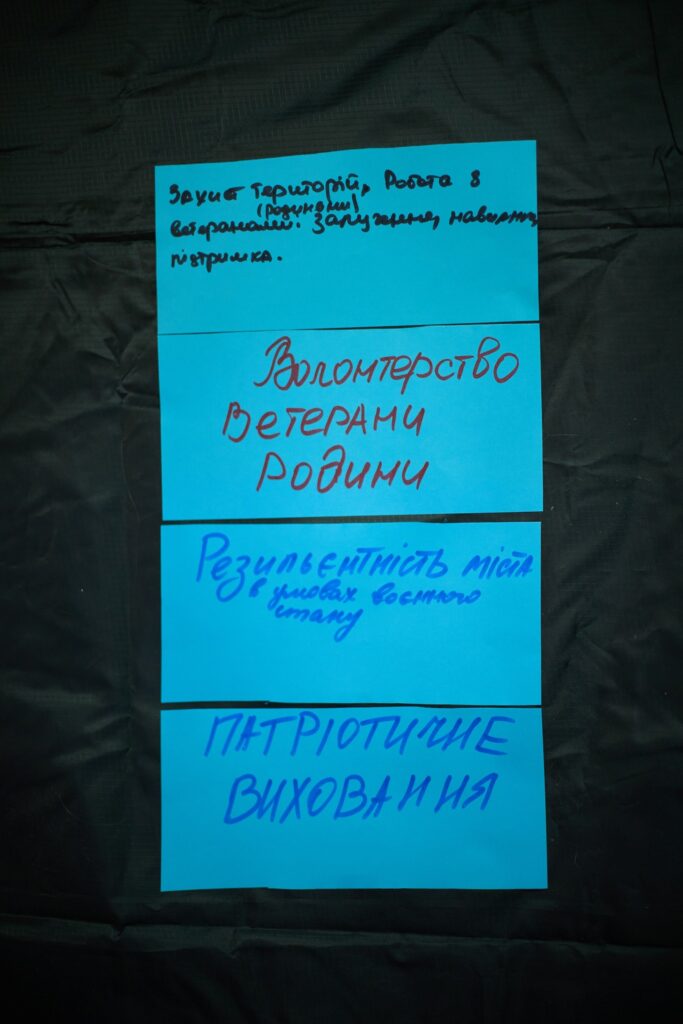 Захист територій, Робота з
(родинами)
ветеранами. Залучення, навчання,
підтримка.
Волонтерство
Ветерани
Родини
Резильєнтність міста
в умовах воєнного
стану
ПАТРІОТИЧНЕ
ВИХОВАННЯ